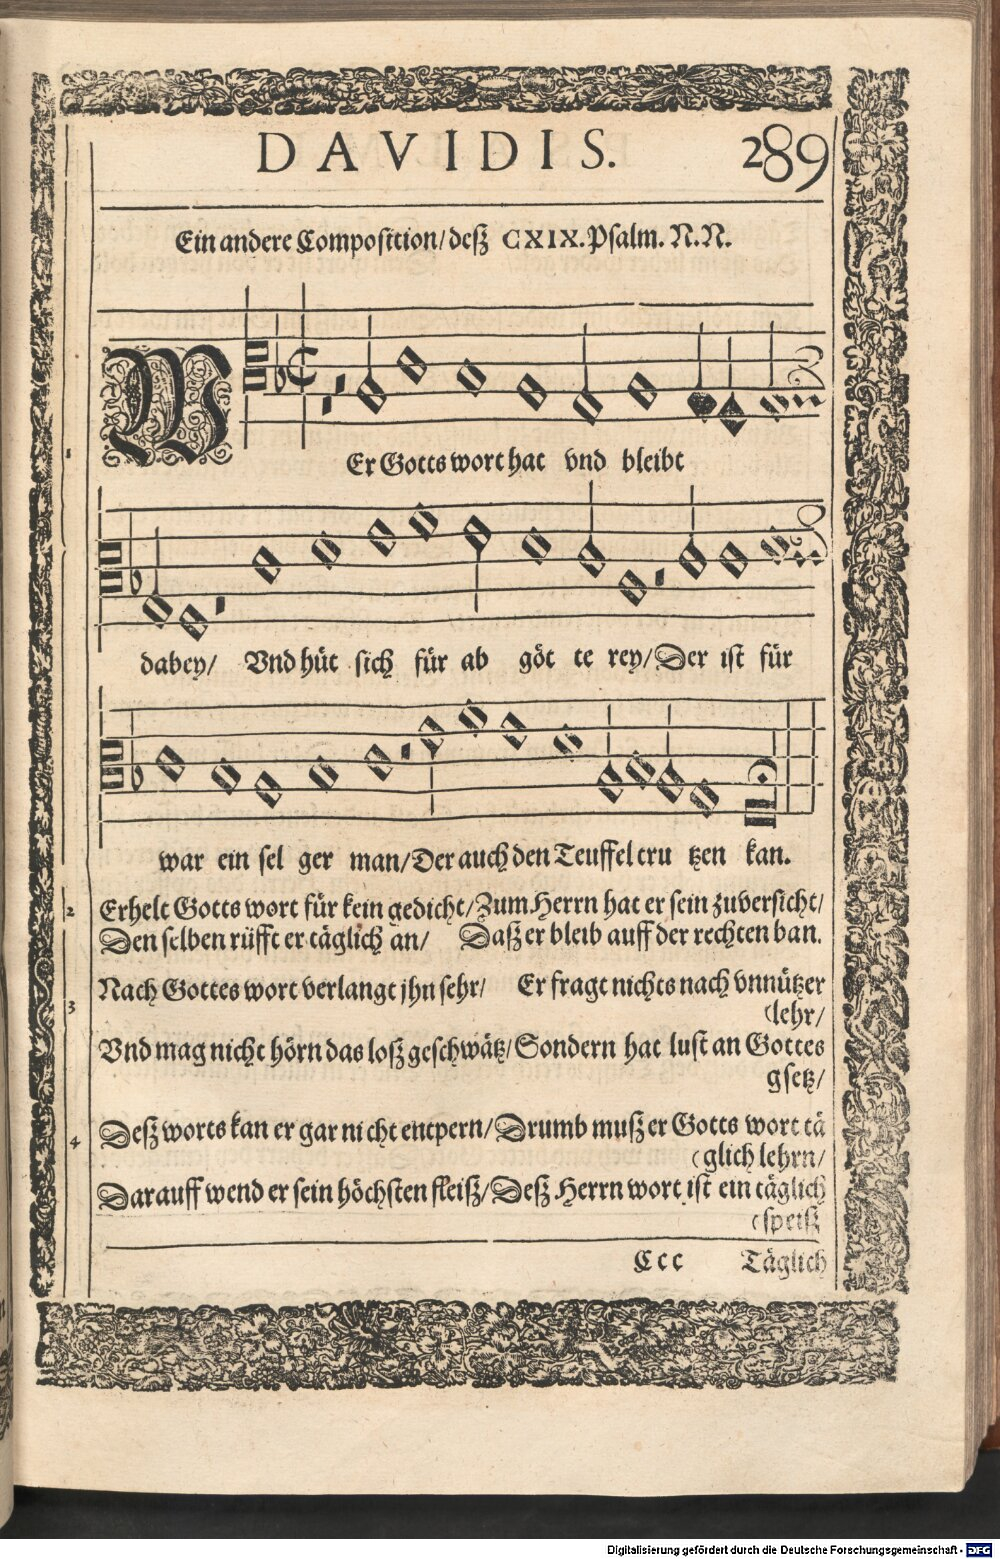 DAVIDIS. 289
Ein andere Composition/ deß CXIX. Psalm. N.N.
1 WEr Gotts wort hat vnd bleibt
dabey/ Vnd hüt sich für ab göt te rey/ Der ist für
war ein sel ger man/ Der auch den Teuffel tru tzen kan.
2 Erhelt Gotts wort für kein gedicht/ Zum Herrn hat er sein zuversicht/
Den selben rüfft er täglich an/ Daß er bleib auff der rechten ban.
3 Nach Gottes wort verlangt jhn sehr/ Er fragt nichts nach vnnützer
(lehr/
Vnd mag nicht hörn das loß geschwätz/ Sondern hat lust an Gottes
gsetz/
4 Deß worts kan er gar nicht entpern/ Drumb muß er Gotts wort tä
(glich lehrn/
Darauff wend er sein höchsten fleiß/ Deß Herrn wort ist ein täglich
(speiß
Ccc Täglich
Digitalisierung gefördert durch die Deutsche Forschungsgemeinschaft - DFG